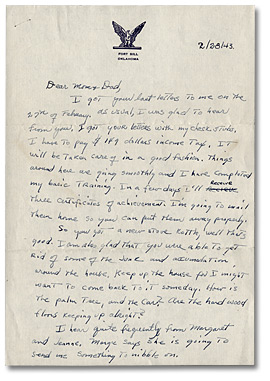 FORT SILL
OKLAHOMA
2/28/43.
Dear Mom & Dad,
I got your last letters to me on the
27th of Febuary. as usual, I was glad to hear
from you. I got your letters with my check stubs.
I have to pay $ 189 dollars income Tax. It
will be taken care of in a good fashion. Things
around here are going smoothly and I have completed
my basic Training. In a few days I'll receive
three certificates of achievement. I'm going to mail
them home so you can put them away properly.
So you got a new stove Kath, well that's
good. I am also glad that you were able to get
rid of some of the junk and accumulation
around the house. Keep up the house for I might
want to come back to it someday. How is
the palm Tree, and the Car? Are the hard wood
floors keeping up alright?
I hear quite frequently from Margaret
and Jeanne. Marge says she is going to
send me something to nibble on.